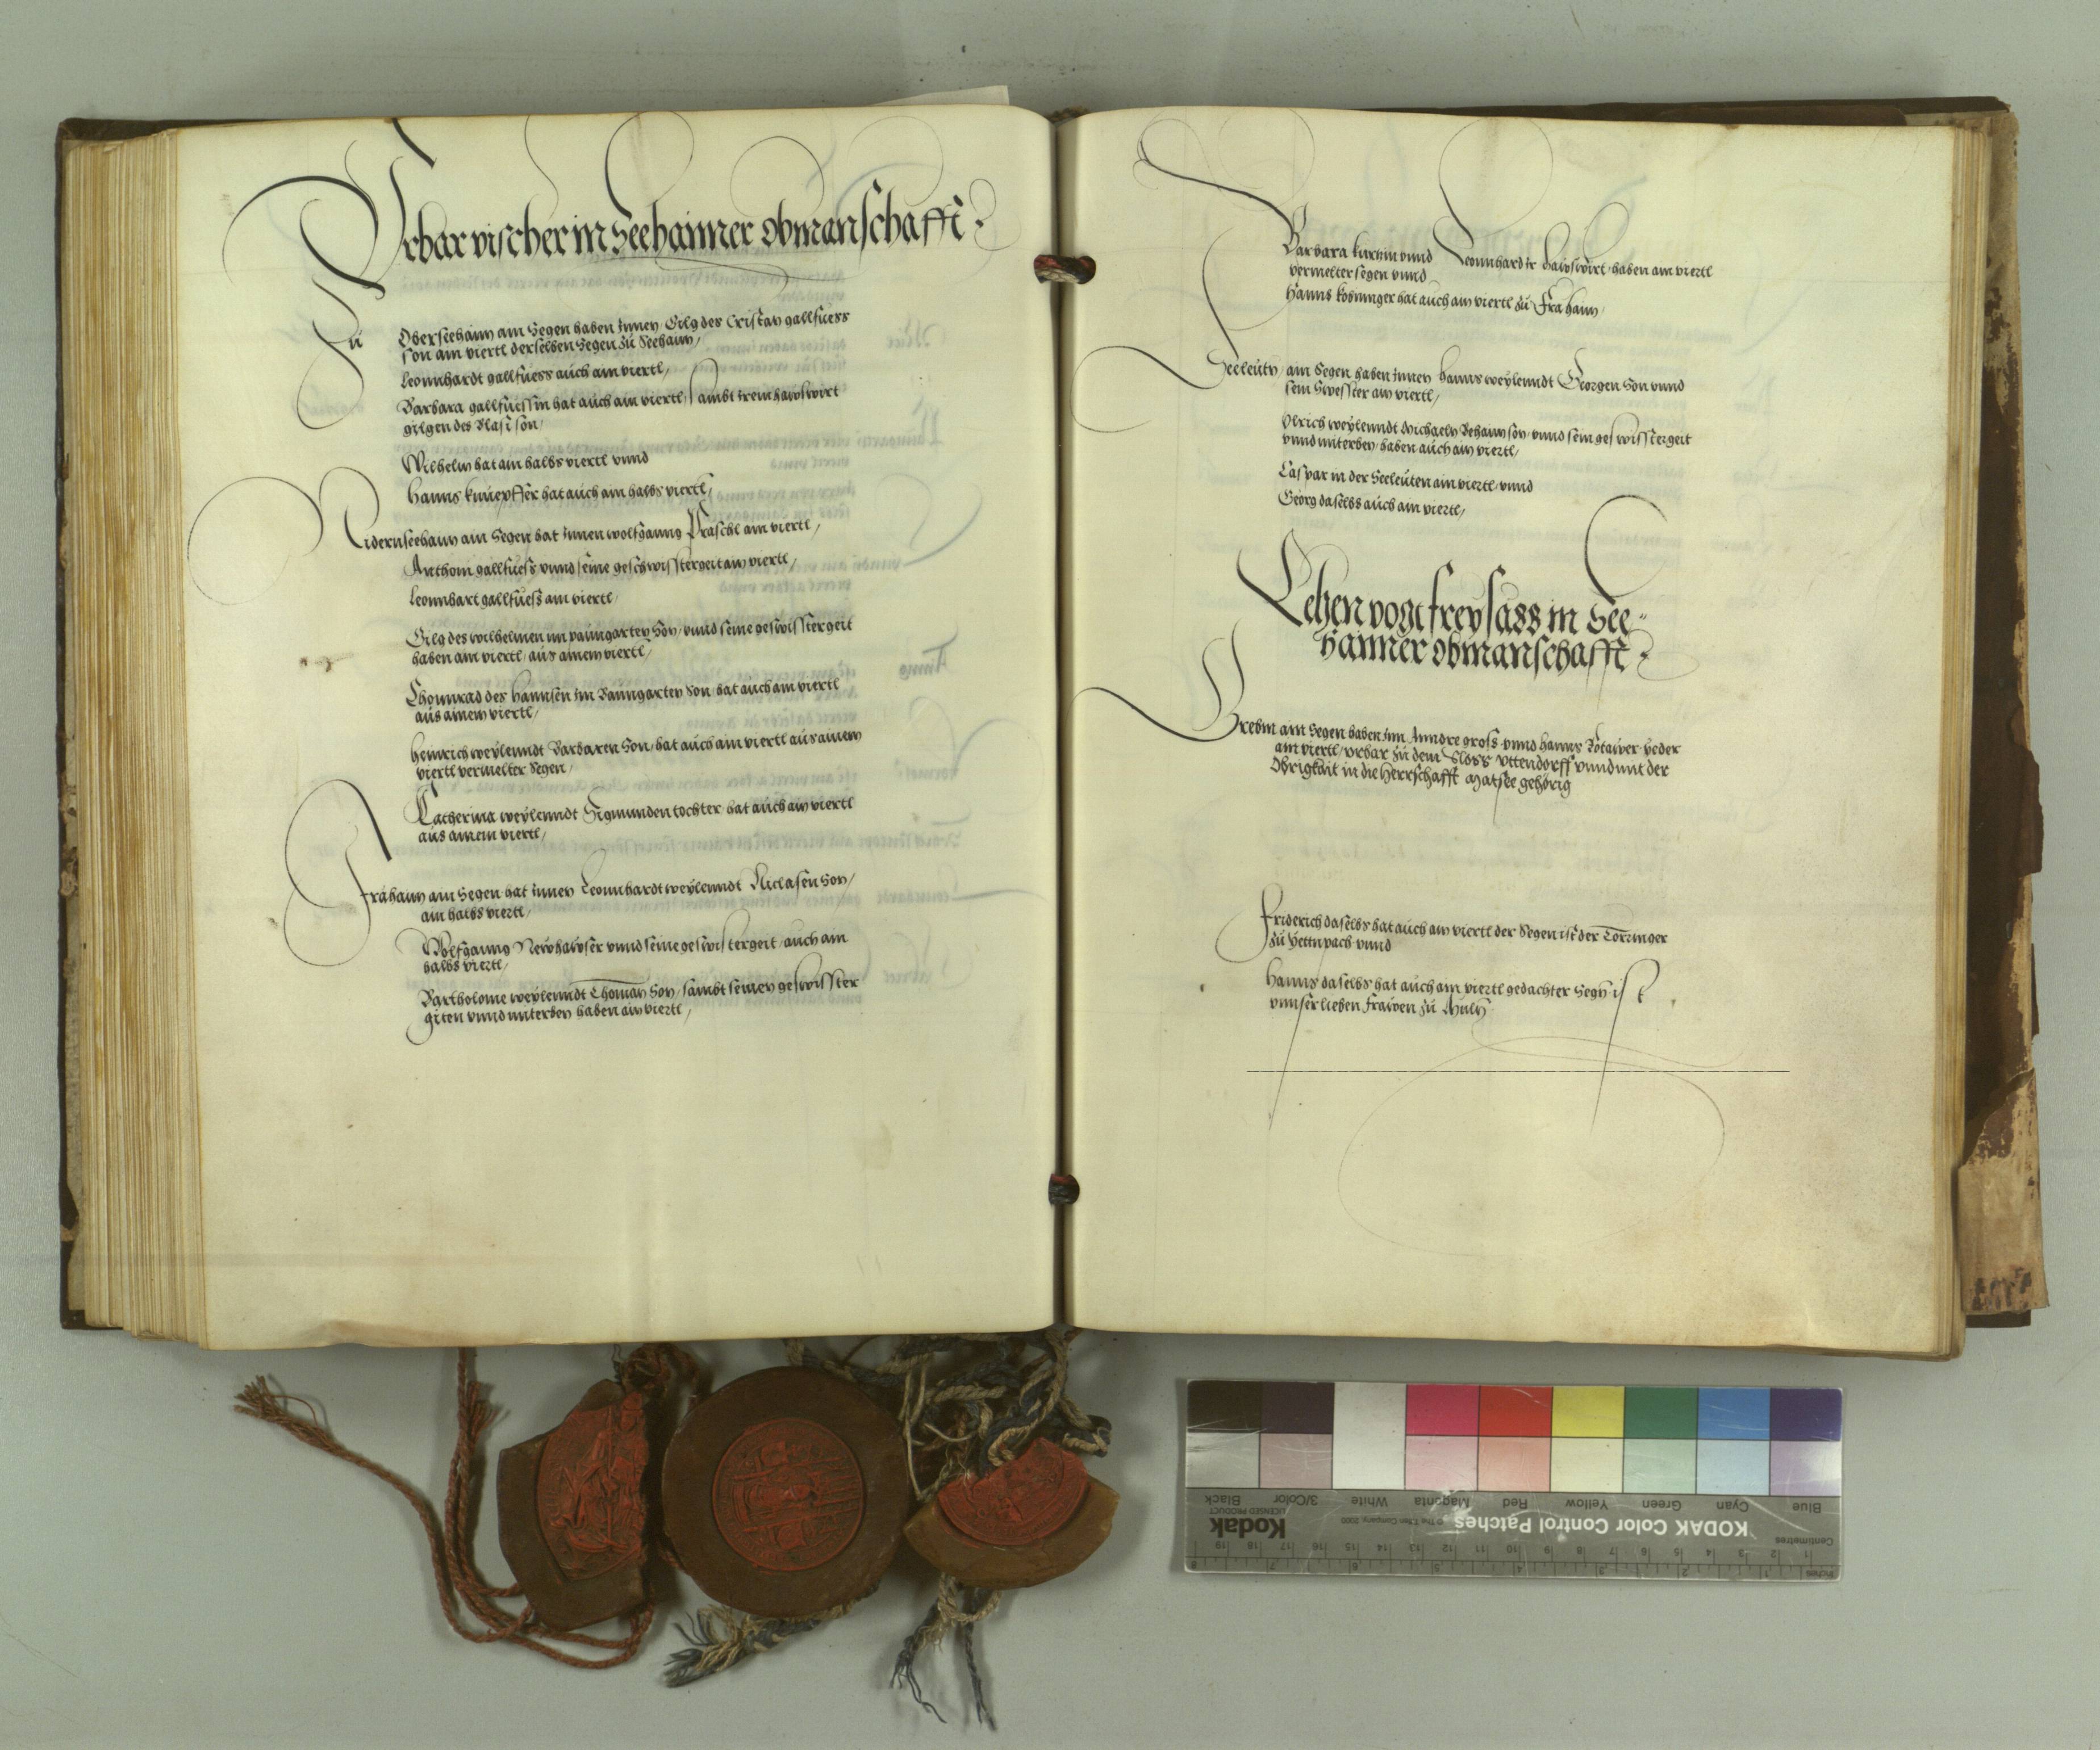 Urbar vischer in Seehaimer obmanschafft
Zu Oberseehaim am Segen haben innen Gilg des Cristan gallfuess
son ain viertl derselben Segen zu Seehaim
Leonnhardt gallfuess auch ain viertl
Barbara gallfuessin hat auch ain viertl sambt irem hawswirt
gilgen des Blasi son
Wilhelm hat ain halbs viertl vnnd
Hanns knüepffer hat auch ain halbs viertl
Nidernseehaim am Segen hat innen wolfganng Praschl ain viertl
Anthoni gallfuess vnnd seine geschwisstergeit ain viertl
Leonnhart gallfuess ain viertl
Gilg des wilhelmen im paungarten Son vnnd seine geswisstergeit
haben ain viertl aus ainem viertl
Chonnrad des Hannsen im Baumgarten Son hat auch ain viertl
aus ainem viertl
Heinrich weylenndt Barbaren Son hat auch ain viertl aus ainem
viertl vermelter Segen
Catherina weylenndt Sigmunden tochter hat auch ain viertl
aus ainem viertl
Frahaim am Segen hat innen Leonnhardt weylenndt Niclasen Son
ain halbs viertl
Wolfganng Newhawser vnnd seine geswistergeit auch ain
halbs viertl
Bartholome weylenndt Thoman Son sambt seinen geswisster
giten vnnd miterben haben ain viertl
Barbara vnnd Leonnhard ir hawswirt haben ain viertl
vermelter segen vnnd
Hanns hat auch ain viertl zu Frahaim
Seeleutn am Segen haben innen Hanns weylenndt Georgen Son vnnd
sein Swesster ain viertl
Ulrich weylenndt Michaeln Behaim son vnnd sein geswisstergeit
vnnd miterben haben auch ain viertl
Caspar in der Seeleuten ain viertl vnnd
Georg daselbs auch ain viertl
Lehen vogt freysass in See-
haimer obmanschafft
Grebm am Segen haben inn Anndre gross vnnd Hanns yeder
ain viertl vrbar zu dem Sloss Vttendorff vnnd mit der
Obrigkait in die Herrschafft Matsee gehörig
Friderich daselbs hat auch ain viertl der Segen ist der Törringer
zu vnnd
Hanns daselbs hat auch ain viertl gedachter Segn ist
vnnser lieben frawen zu
KODAK Color Control Patches
Kodak
LICENSED PRODUCT
© The Tiffen Company, 2000
Blue Cyan Green Yellow Red Magenta White 3/Color Black
Centimetres
1 2 3 4 5 6 7 8 9 10 11 12 13 14 15 16 17 18 19
Inches
1 2 3 4 5 6 7 8